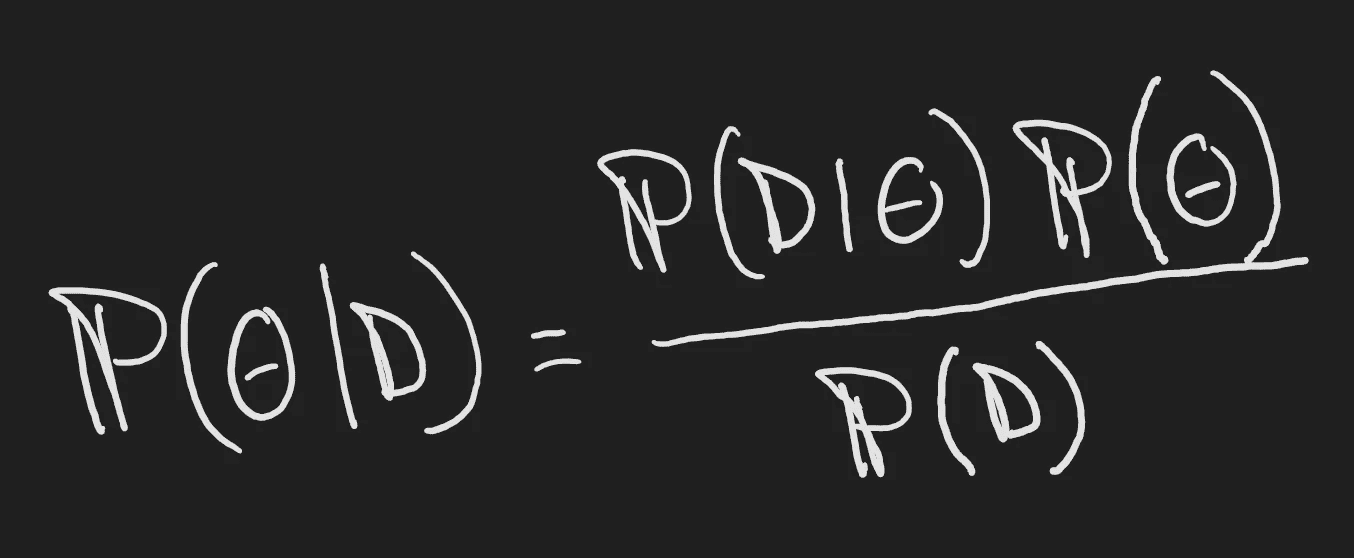 ℙ(θ|D) = ℙ(D|θ) ℙ(θ) / ℙ(D)